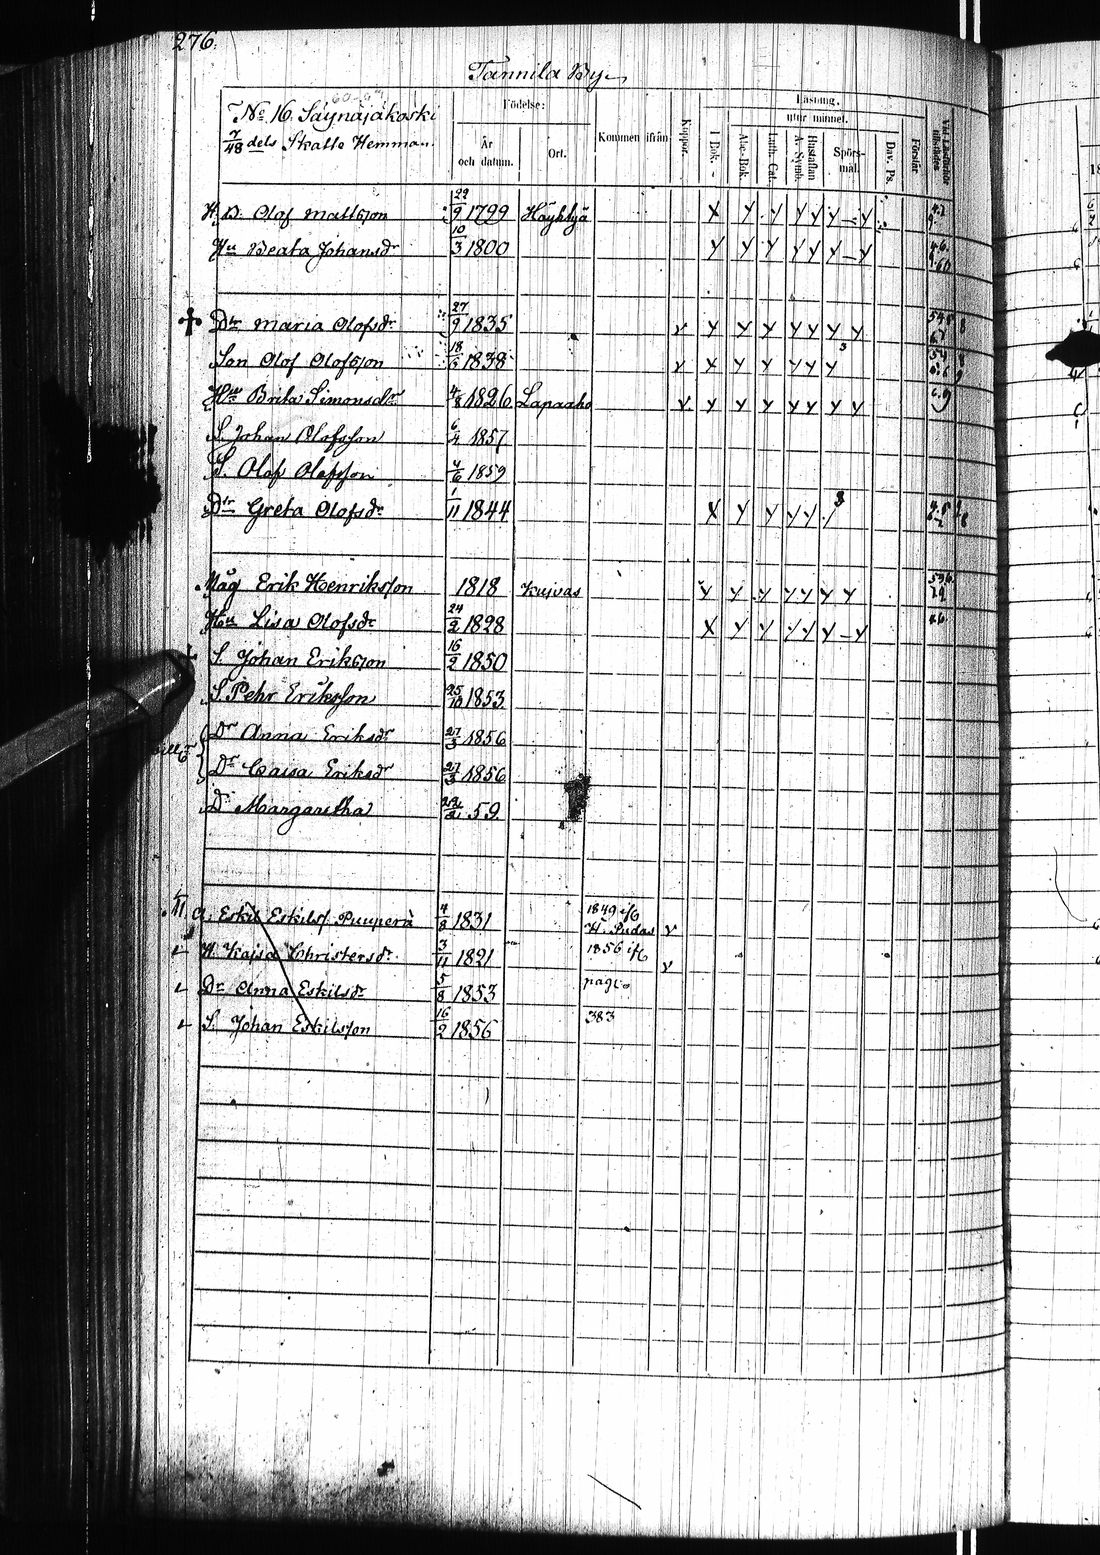 276.
Tannila By.
60-67
No 16. Säynäjäkoski
7/48 dels Skatte Hemman.
Födelse:
År och datum.
Ort.
Kommen ifrån
Koppor.
Läsning.
utur minnet.
I Bok.
Abc-Bok.
Luth. Cat.
Hustaflan A. Symb.
Spörs-mål.
Dav. Ps.
Förstår
B. Olof Mattsson 29/9 1799 Höyhtyä
Hu Beata Johansdr 10/3 1800
Dtr Maria Olofsdr 27/9 1835
Son Olof Olofsson 18/5 1838
Hu Brita Simonsdr 4/8 1826 Lapaaho
S. Johan Olofsson 6/4 1857
S. Olof Olofsson 4/6 1859
Dtr Greta Olofsdr 1/11 1844
Måg Erik Henriksson 1818 Kujvas
Hu Lisa Olofsdr 24/2 1828
S. Johan Eriksson 16/2 1850
S. Pehr Eriksson 25/10 1853
Dr Anna Eriksdr 27/3 1856
Dr Caisa Eriksdr 27/3 1856
D. Margaretha 59
Eskil Eskilss. Puuperä 4/8 1831 1849 ifr H. Pudas
H. Kajsa Christersdr 3/11 1821 1856 ifr
Dr Anna Eskilsdr 5/8 1853 pag.
S. Johan Eskilsson 16/2 1856 383